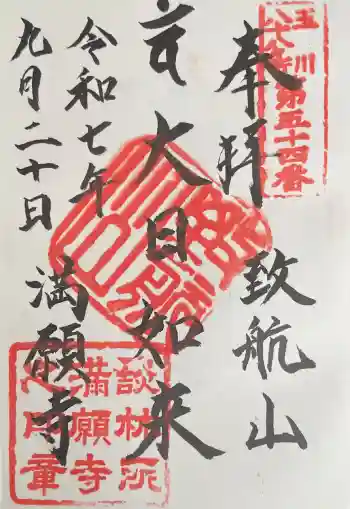 奉拝
致航山
大日如来
満願寺
令和七年
九月二十日
玉川
八十八ヶ所第五十四番
談林所
満願寺
之印章